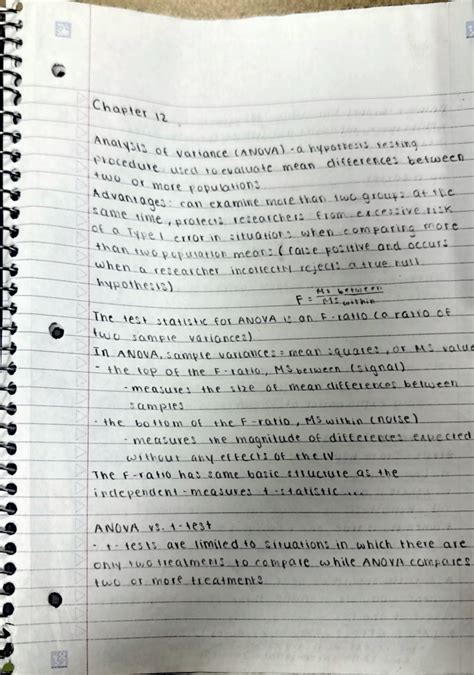 Chapter 12
Analysis of Variance (ANOVA) - a hypothesis testing
procedure used to evaluate mean differences between
two or more populations
Advantages: can examine more than two groups at the
same time, protects researchers from excessive risk
of a Type 1 error in situations when comparing more
than two population means (false positive and occurs
when a researcher incorrectly rejects a true null
hypothesis)
F = MS between / MS within
The test statistic for ANOVA is an F-ratio (a ratio of
two sample variances)
In ANOVA, sample variances = mean squares, or MS value
- the top of the F-ratio, MS between (signal)
- measures the size of mean differences between
samples
- the bottom of the F-ratio, MS within (noise)
- measures the magnitude of differences expected
without any effects of the IV
The F-ratio has same basic structure as the
independent-measures t-statistic ...
ANOVA vs. t-test
- t-tests are limited to situations in which there are
only two treatments to compare while ANOVA compares
two or more treatments